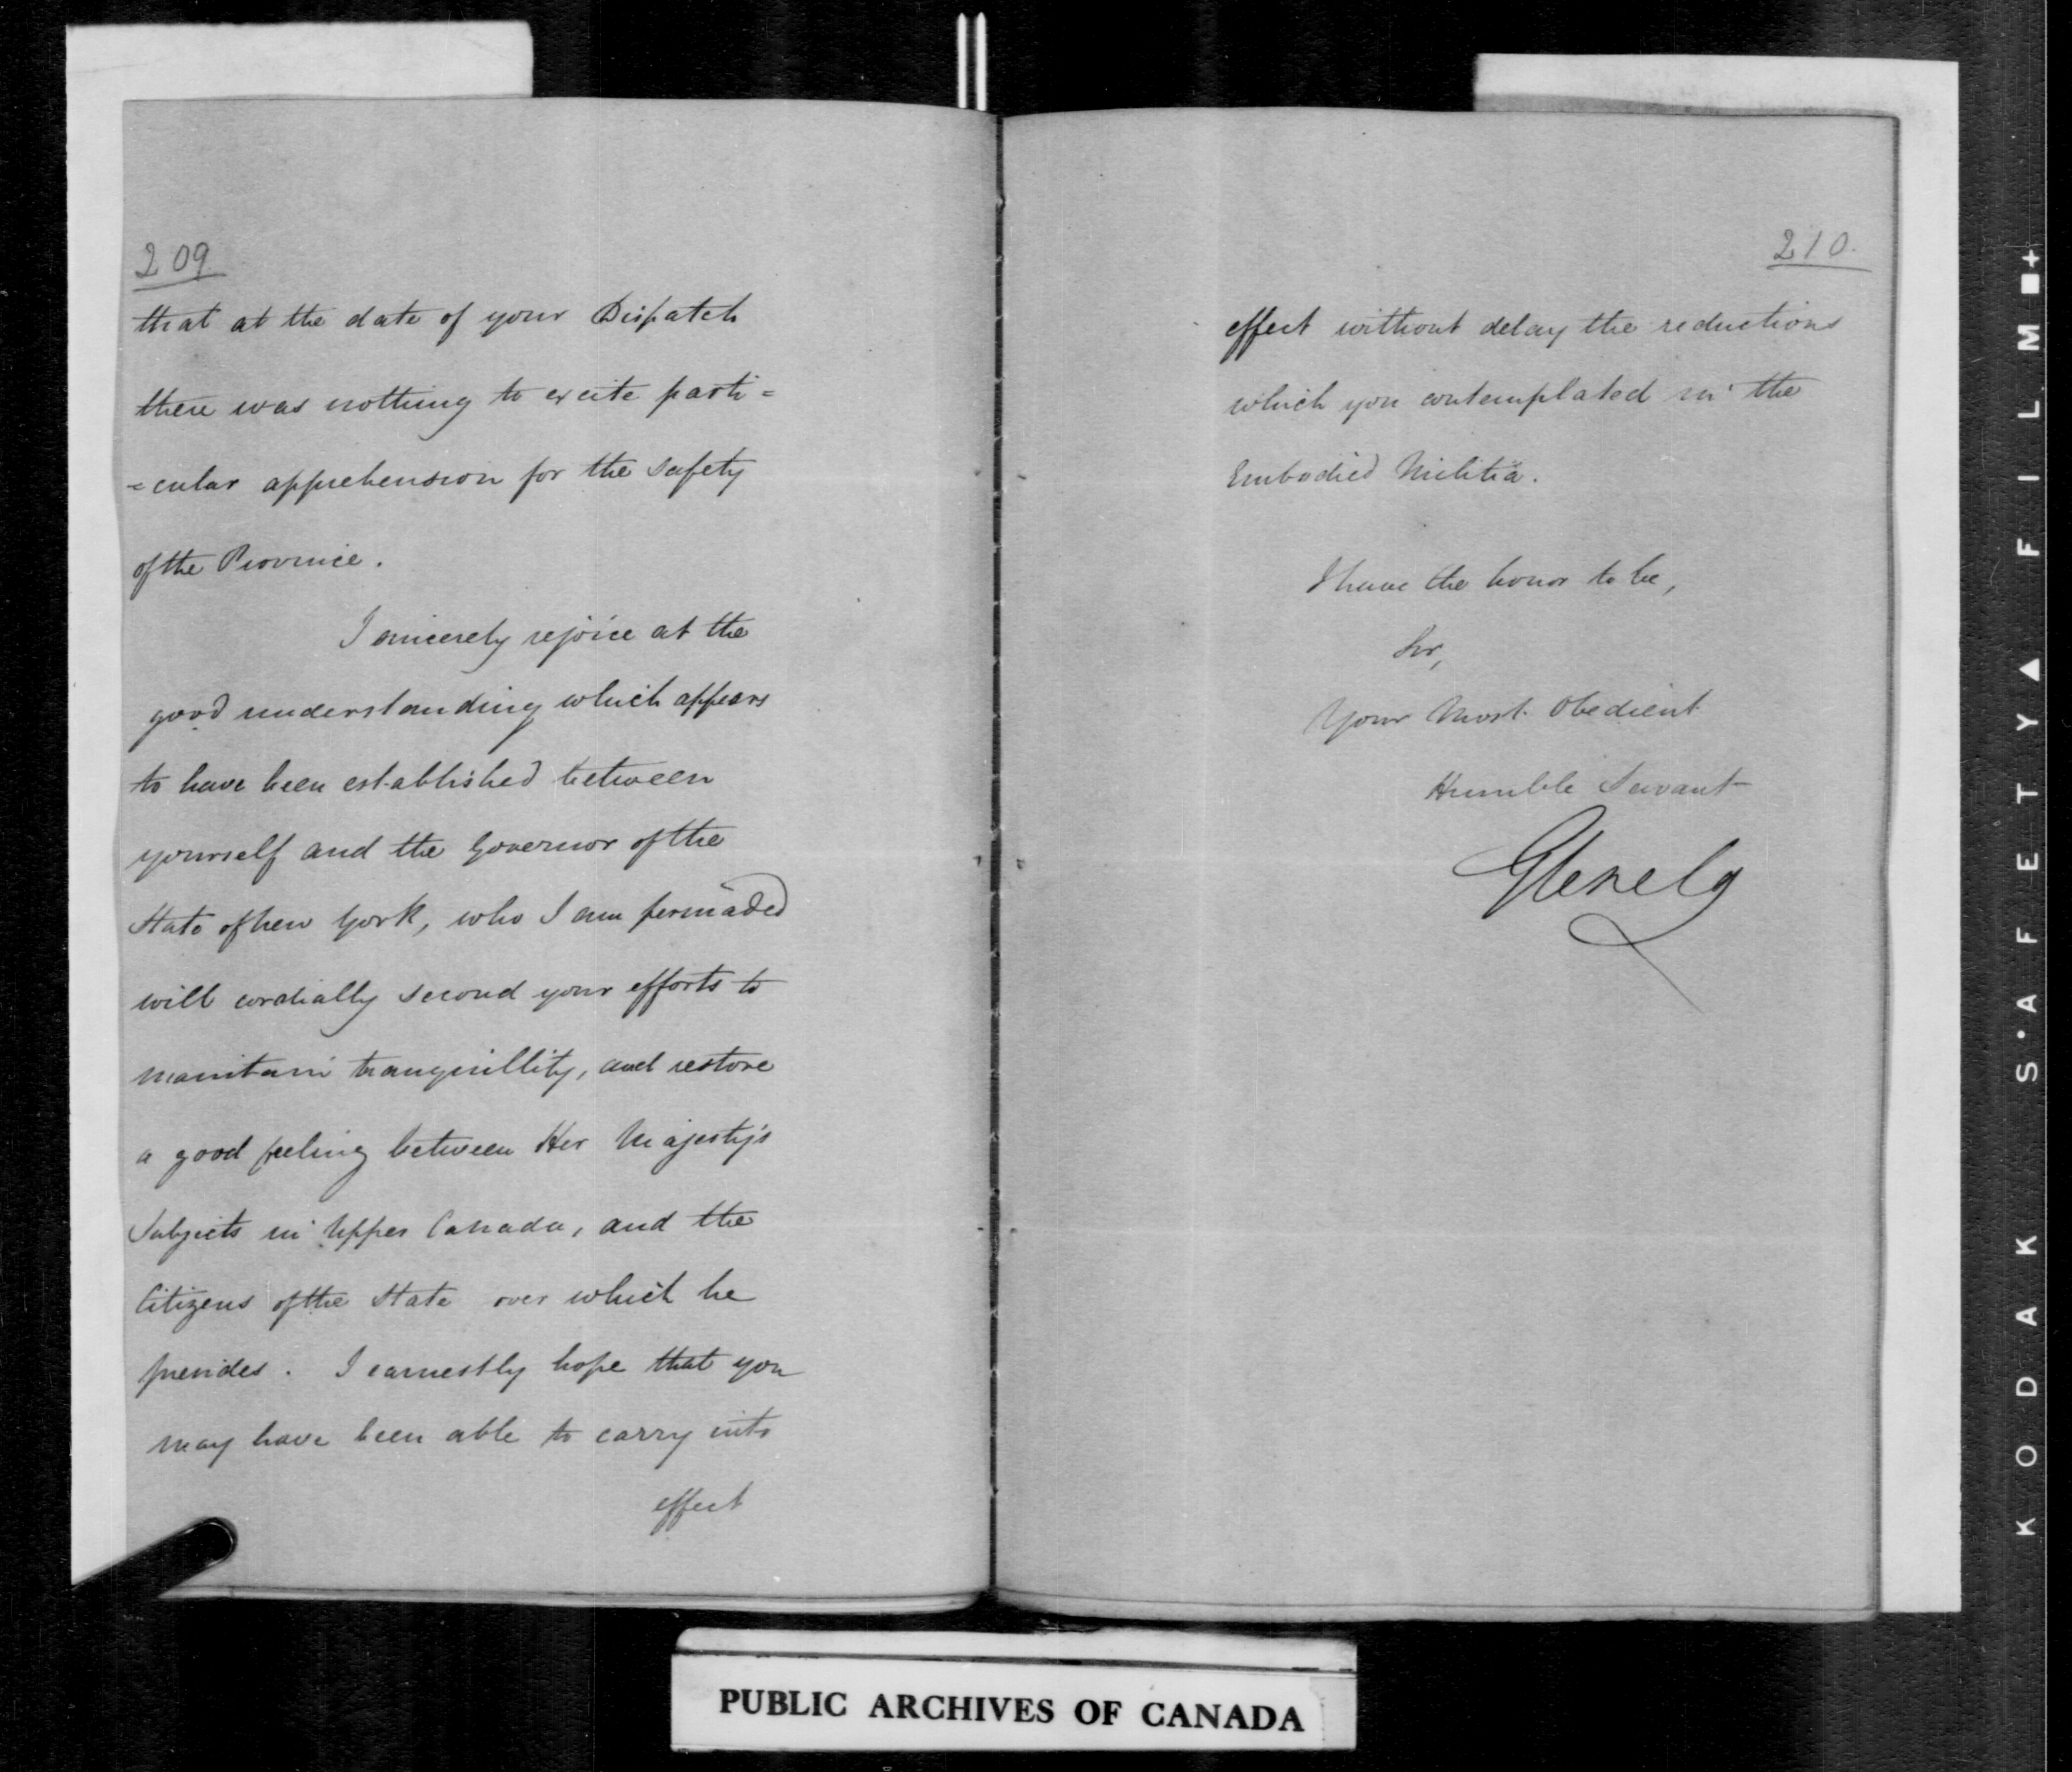 209
that at the date of your Dispatch
there was nothing to excite parti=
=cular apprehension for the safety
of the Province.
I sincerely rejoice at the
good understanding which appears
to have been established between
yourself and the Governor of the
State of New York, who I am persuaded
will cordially second your efforts to
maintain tranquillity, and restore
a good feeling between Her Majesty's
Subjects in Upper Canada, and the
Citizens of the State over which he
presides. I earnestly hope that you
may have been able to carry into
effect
210.
effect without delay the reductions
which you contemplated in the
Embodied Militia.
I have the honor to be,
Sir,
Your Most Obedient
Humble Servant
Glenelg
PUBLIC ARCHIVES OF CANADA
KODAK S'AFETY▲ FILM ■+